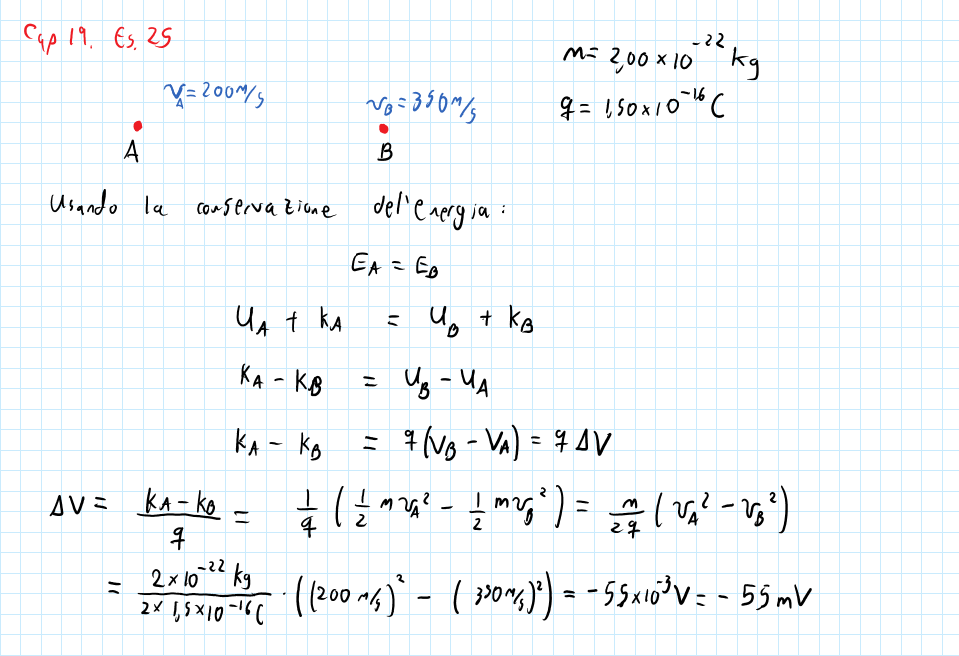 Cap 19. Es. 25
m = 2,00 × 10⁻²² kg
v_A = 200 m/s
v_B = 350 m/s
q = 1,50 × 10⁻¹⁶ C
A
B
Usando la conservazione dell'energia:
E_A = E_B
U_A + K_A = U_B + K_B
K_A - K_B = U_B - U_A
K_A - K_B = q(V_B - V_A) = q ΔV
ΔV = (K_A - K_B)/q = 1/q (1/2 m v_A² - 1/2 m v_B²) = m/2q (v_A² - v_B²)
= (2 × 10⁻²² kg)/(2 × 1,5 × 10⁻¹⁶ C) · ((200 m/s)² - (350 m/s)²) = -55 × 10⁻³ V = - 55 mV